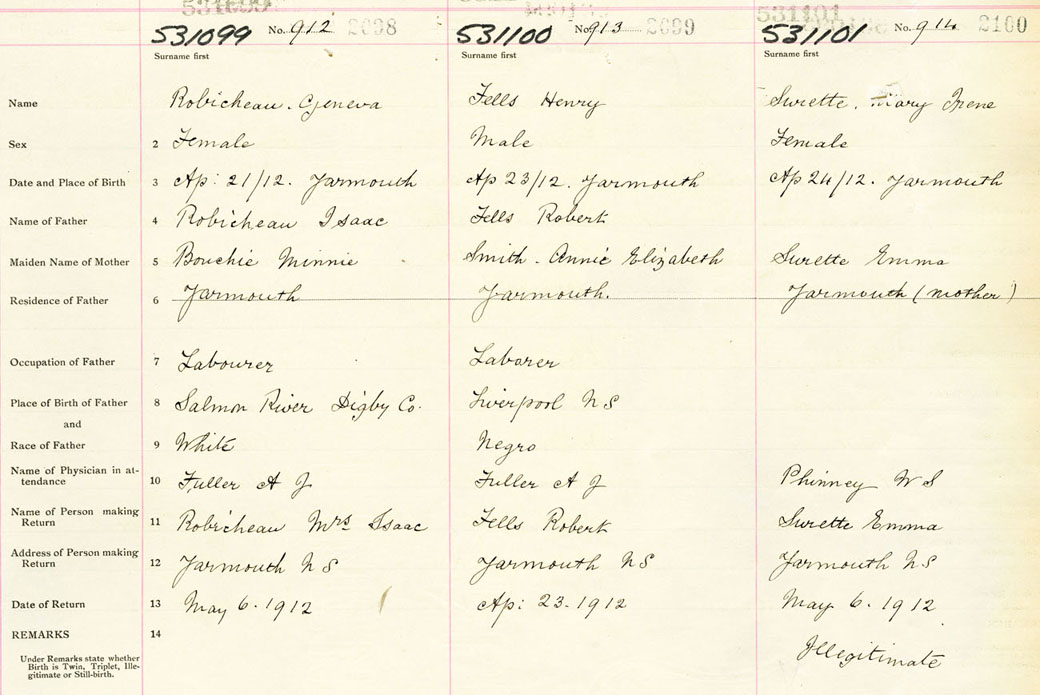 531099 No. 912 2098 531100 No. 913 2099 531101 No. 914 2100
Surname first Surname first Surname first
Name Robicheau. Geneva Fells Henry Surette. Mary Irene
Sex 2 Female Male Female
Date and Place of Birth 3 Ap: 21/12. Yarmouth Ap 23/12. Yarmouth Ap 24/12. Yarmouth
Name of Father 4 Robicheau Isaac Fells Robert
Maiden Name of Mother 5 Bouchie Minnie Smith - Annie Elizabeth Surette Emma
Residence of Father 6 Yarmouth Yarmouth. Yarmouth (mother)
Occupation of Father 7 Labourer Laborer
Place of Birth of Father 8 Salmon River Digby Co. Liverpool N S
and
Race of Father 9 White Negro
Name of Physician in at-
tendance 10 Fuller A J Fuller A J Phinney W S
Name of Person making
Return 11 Robicheau Mrs Isaac Fells Robert Surette Emma
Address of Person making
Return 12 Yarmouth N S Yarmouth N S Yarmouth N S
Date of Return 13 May 6. 1912 Ap: 23. 1912 May. 6. 1912
REMARKS 14
Under Remarks state whether
Birth is Twin, Triplet, Ille-
gitimate or Still-birth.
Illegitimate